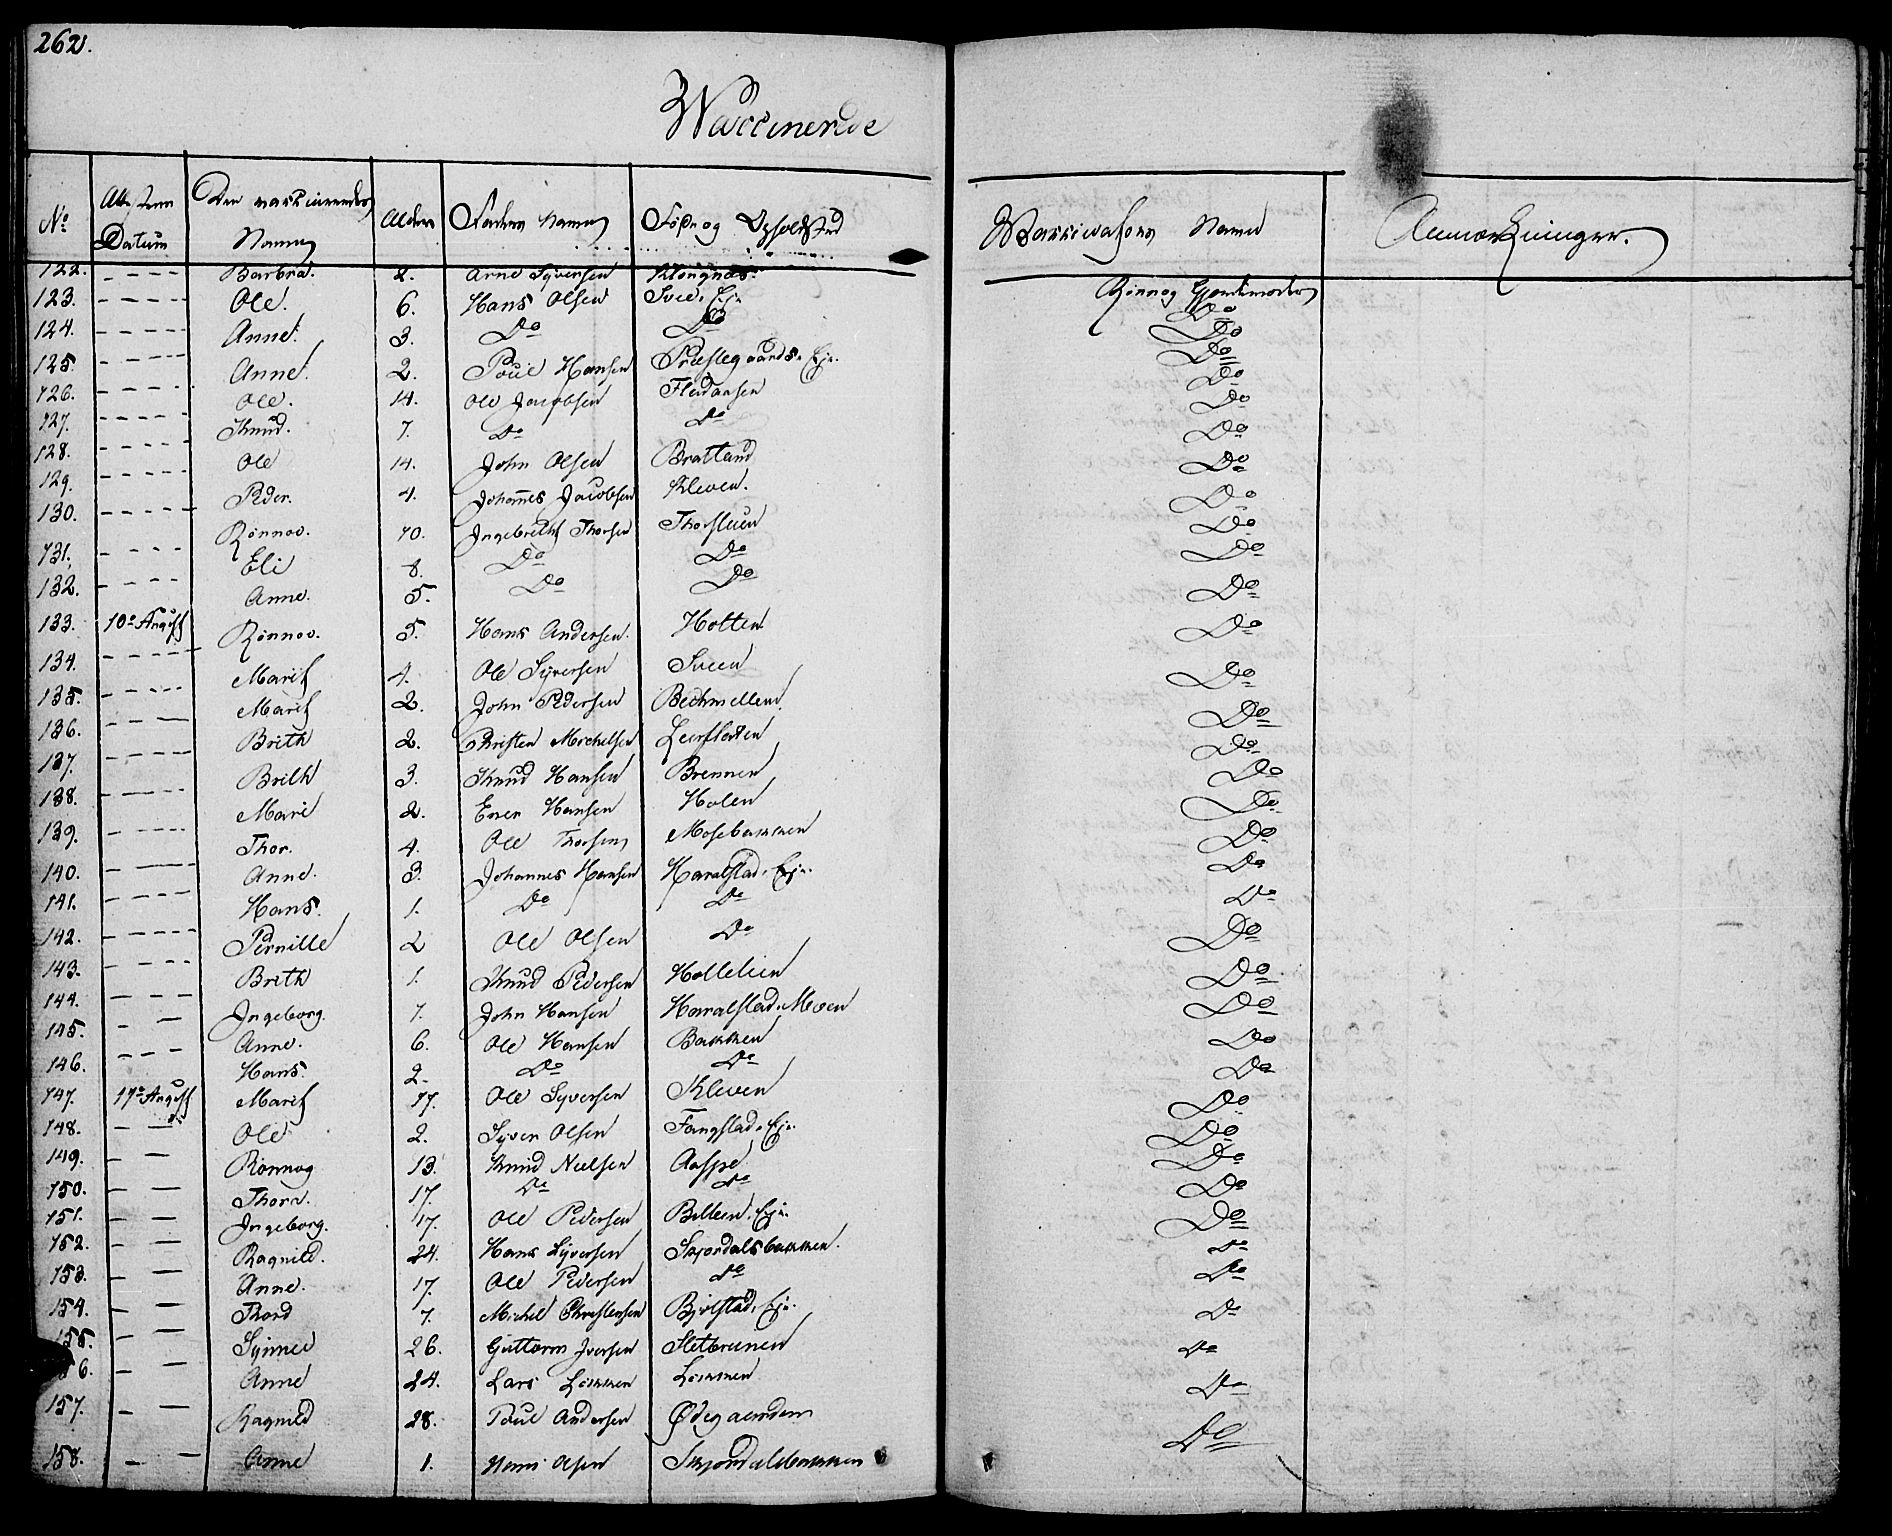 262.
Waccinerede
No | Attestens Datum | Den vaccineredes Navn | Alder | Faders Navn | Føde og Opholdsted | Vaccinatørs Navn | Anmærkninger.
122. | - - - - | Barbra. | 2. | Arne Syversen | Klongnæs | Rønnog Gjordemoder
123. | - - - - | Ole. | 6. | Hans Olsen | Svee. Ej. | Do
124. | - - - - | Anne. | 3. | Do | Do | Do
125. | - - - - | Anne. | 2. | Poul Hansen | Præstegaards. Ej. | Do
126. | - - - - | Ole. | 14. | Ole Jacobsen | | Do
127. | - - - - | Knud. | 7. | Do | Do | Do
128. | - - - - | Ole | 14. | John Olsen | Bratland | Do
129. | - - - - | Peder. | 4. | Johannes Jacobsen | Kleven. | Do
130. | - - - - | Rønnov. | 10. | Ingebreth Thorsen | Thorstuen | Do
131. | - - - - | Eli | 8. | Do | Do | Do
132. | - - - - | Anne. | 5. | Do | Do | Do
133. | 10de August | Rønnov. | 5. | Hans Andersen. | Holten | Do
134. | - - - - | Marit | 4. | Ole Syversen | Sveen | Do
135. | - - - - | Marit | 2. | John Pedersen | Bechmellem | Do
136. | - - - | Brith | 2. | Christen Michelsen | | Do
137. | - - - - | Brith | 3. | Knud Hansen | Brennen | Do
138. | - - - | Mari | 2. | Ener Hansen | Holen | Do
139. | - - - - | Thor. | 4. | Ole Thorsen | Mosebakken | Do
140. | - - - - | Anne. | 3. | Johannes Hansen | Haralstad. Ej. | Do
141. | - - - - | Hans. | 1. | Do | Do | Do
142. | - - - - | Pernille | 2 | Ole Olsen | Do | Do
143. | - - - - | Brith | 1. | Knud Pedersen | Hollelien | Do
144. | - - - - | Ingeborg. | 7. | John Hansen | Haralstad. Moen | Do
145. | - - | Anne. | 6. | Ole Hansen | Bakken | Do
146. | - - - | Hans. | 2. | Do | Do | Do
147. | 17de August | Marit | 17. | Ole Syversen | Kleven | Do
148. | - - | Ole | 2. | Syver Olsen | Fangstad. Ej. | Do
149. | - - | Rønnog | 13. | Knud Nielsen | Aaspe | Do
150. | - - | Thora. | 17. | Do | Do | Do
151. | - - | Ingeborg. | 17. | Ole Pedersen | Billeen. Ej. | Do
152. | - - | Ragnild. | 24. | Hans Syversen | Skjordalsbakken. | Do
153. | - - | Anne. | 17. | Ole Pedersen | Do | Do
154. | - - | Thord | 7. | Michel Christensen | Bjølstad. Ej. | Do
155. | - - | Synnee | 26. | Guttorm Iversen | | Do
156. | - - | Anne | 24. | Lars Løkken | Løkken | Do
157. | - - | Ragnild | 28. | Poul Andersen | | Do
158. | - - | Anne | 1. | Hans Olsen | Skjordalsbakken | Do